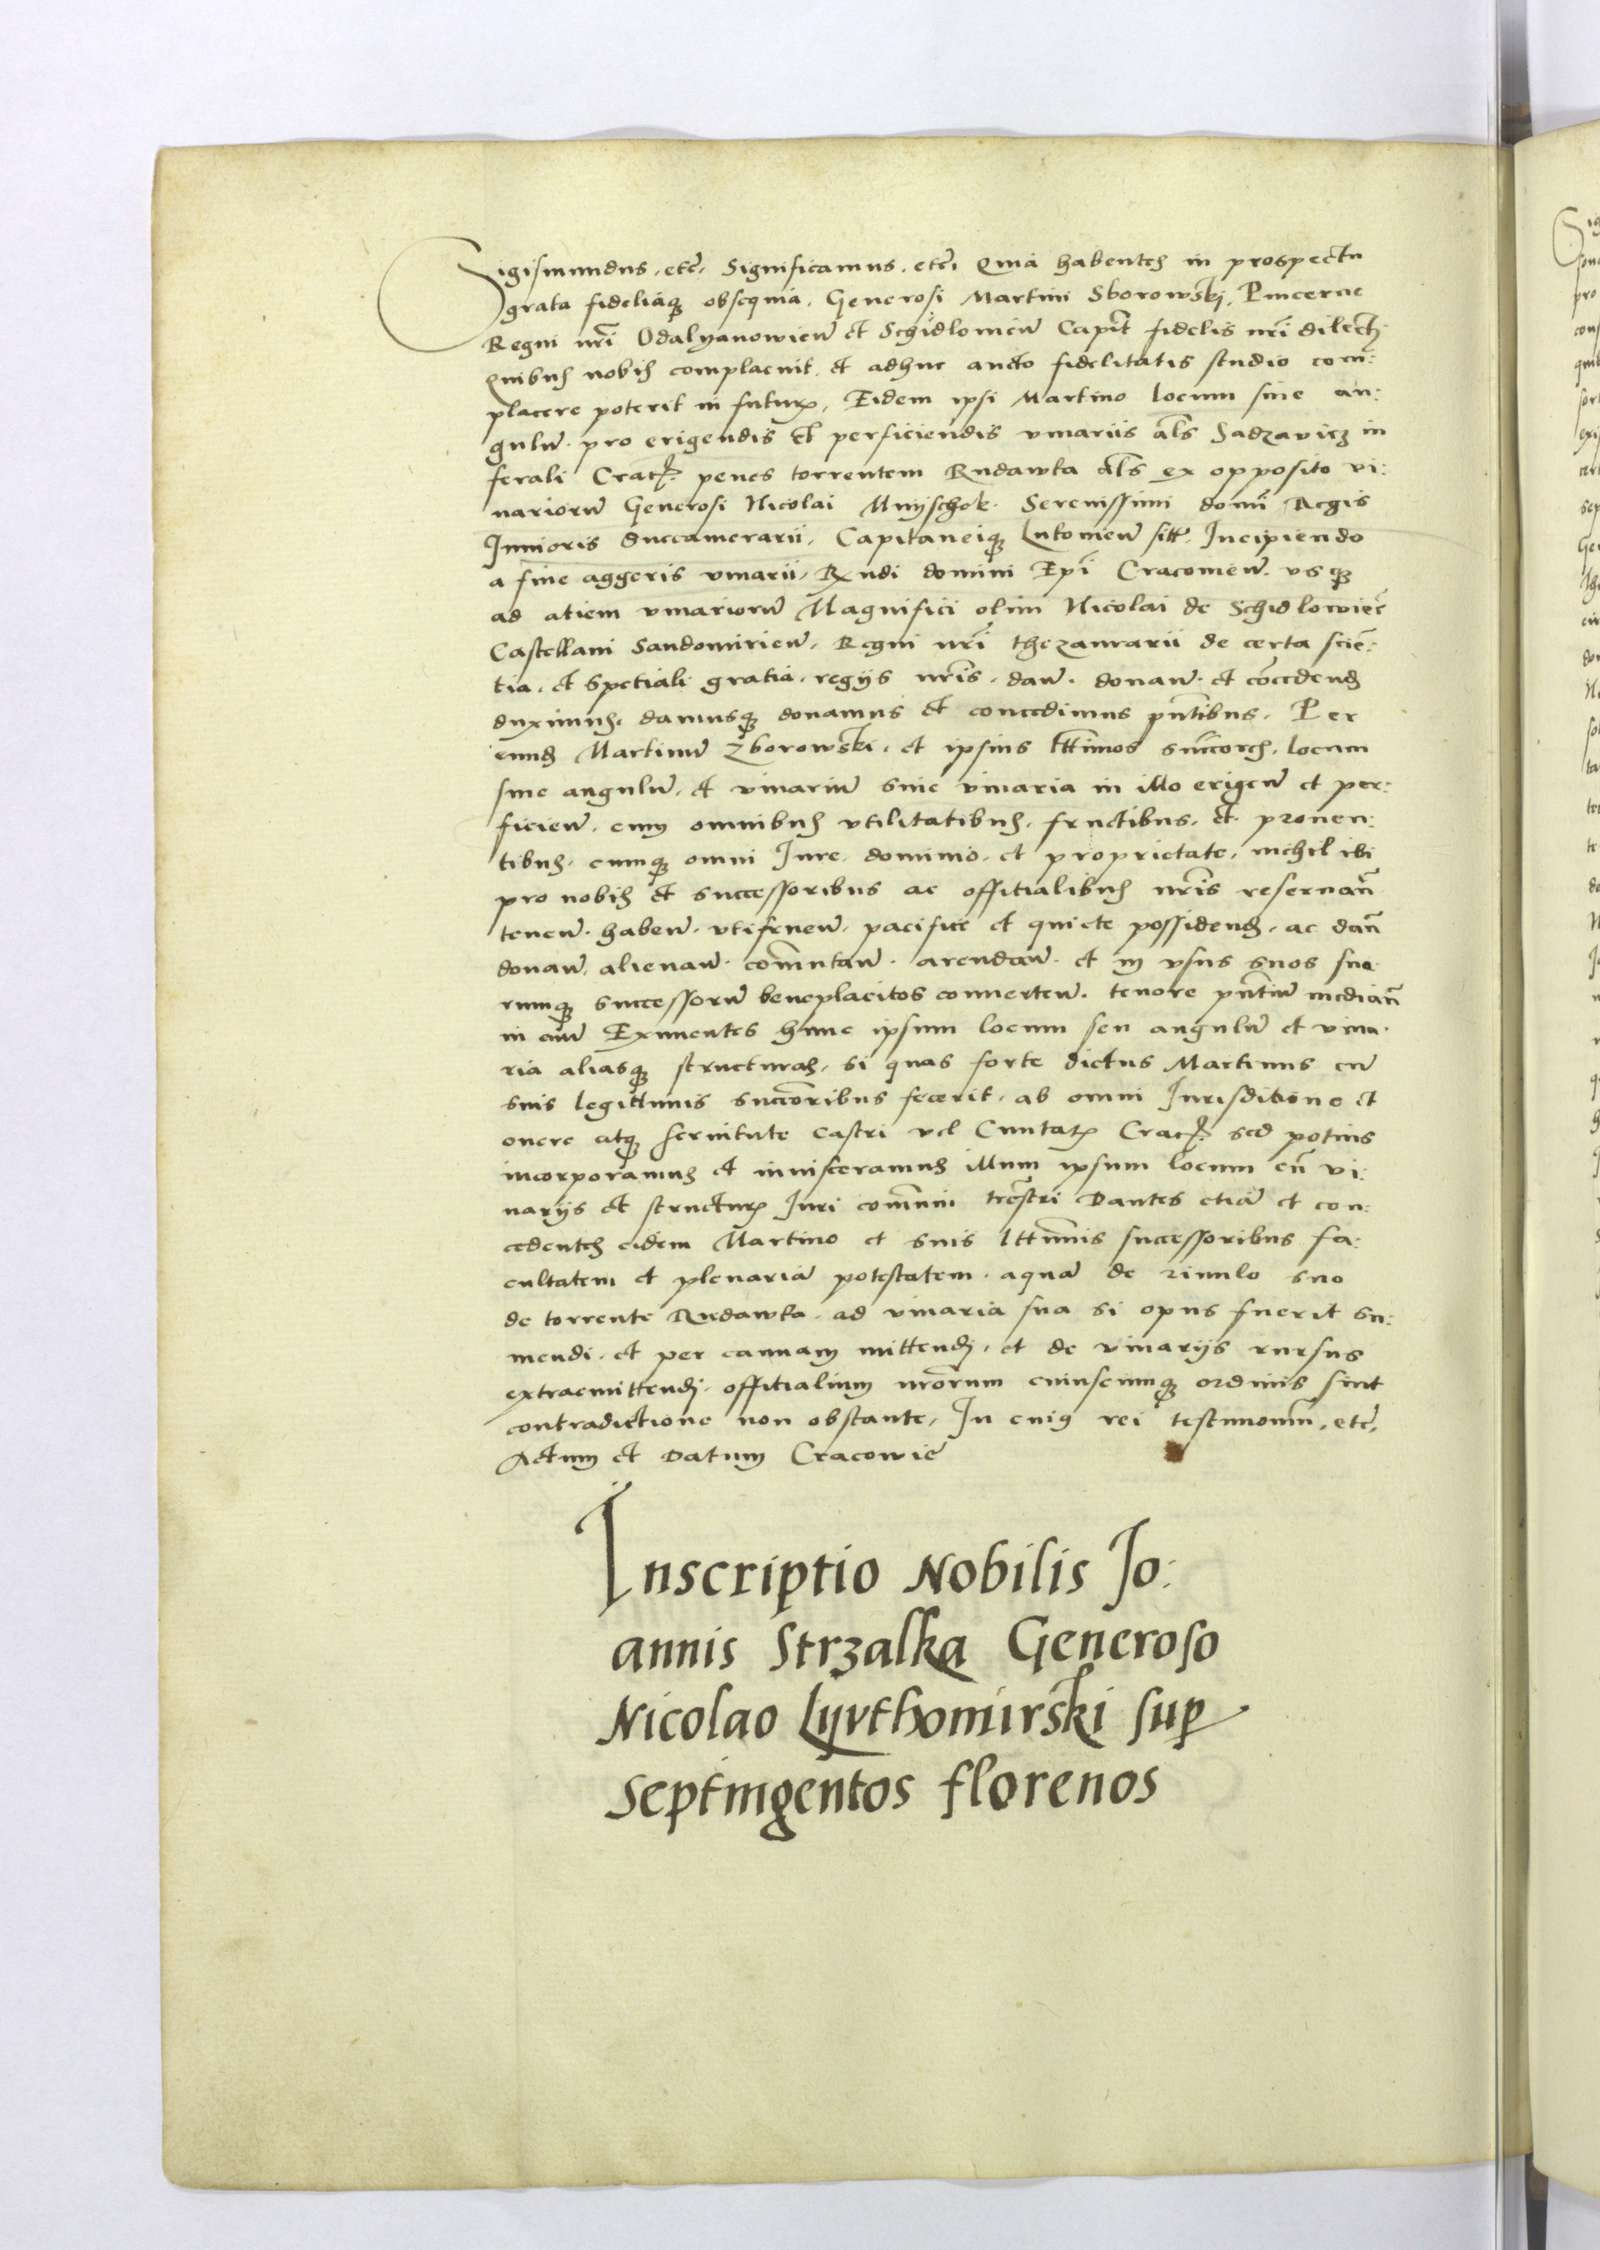 Sigismundus, etc̃, Significamus, etc̃, Quia habentes in prospectu
grata fideliaq̃ obsequia, Generosi Martini Sborowski, Pincerne
Regni nr̃i Odalyanowien̄ et Schidlowien̄ Capit̃ fidelis nr̃i dilecti
Quibus nobis complacuit, et adhuc aucto fidelitatis studio com:
placere poterit in futurũ, Eidem ipsi Martino locum siue an:
gulũ pro erigendis et perficiendis viuariis al̃s Sadzavicz in
ferali Crac̃ penes torrentem Rudawka al̃s ex opposito vi:
uariorũ Generosi Nicolai Mnyschek Serenissimi domĩ Regis
Junioris Succamerarii, Capitaneiq̃ Lutomieñ sitt̃. Incipiendo
a fine aggeris viuarii, Rx̃ndi domini Ep̃i Cracouieñ. vsq̃
ad atiem viuariorũ Magnifici olim Nicolai de Schidlowiec̃
Castellani Sandomirieñ, Regni nr̃i thezaurarii de certa scie:
tia, et spetiali gratia, regijs nr̃is, dañ. donañ. et cõcedend̃
duximus, damusq̃ donamus et concedimus pñtibus, Per
eund̃ Martinũ Zborowski, et ipsius lt̃timos sucĉores, locum
siue angulũ, et viuariũ siue viuaria in illo erigeñ et per:
ficieñ, cum omnibus vtilitatibus, fructibus, et prouen:
tibus, cumq̃ omni Jure, dominio, et proprietate, nichil ibi
pro nobis et successoribus ac offitialibus nr̃is reseruañ
teneñ. habeñ. vtifrueñ. pacifice et quiete possidend̃, ac dañ
donañ, alienañ. com̃utañ. arendañ. et in vsus suos suo
rumq̃ successorũ beneplacitos conuerteñ. tenore pñtiũ mediañ
in euũ Eximentes hunc ipsum locum seu angulũ et viua:
ria aliasq̃ structuras, si quas forte dictus Martinus cũ
suis legittimis succõribus fecerit, ab omni Jurisditione et
onere atq̃ seruitute castri vel Ciuitatũ Crac̃ sed potius
incorporamus et inuisceramus illum ipsum locum cũ vi:
uarijs et structurũ Juri com̃uni tr̃estri Dantes etiã et con:
cedentes eidem Martino et suis lt̃timis successoribus fa:
cultatem et plenariã potestatem, aquã de riuulo suo
de torrente Rudawka, ad viuaria sua si opus fuerit su:
mendi, et per cannam mittend̃, et de viuarijs rursus
extraemittend̃, offitialium nrõrum cuiuscumq̃ ordinis sint
contradictione non obstante, In cuiꝯ rei testimoniũ, etc̃,
Actum et Datum Cracowie
Inscriptio Nobilis Jo:
annis Strzalka Generoso
Nicolao Lyvthomirski sup
Septingentos florenos